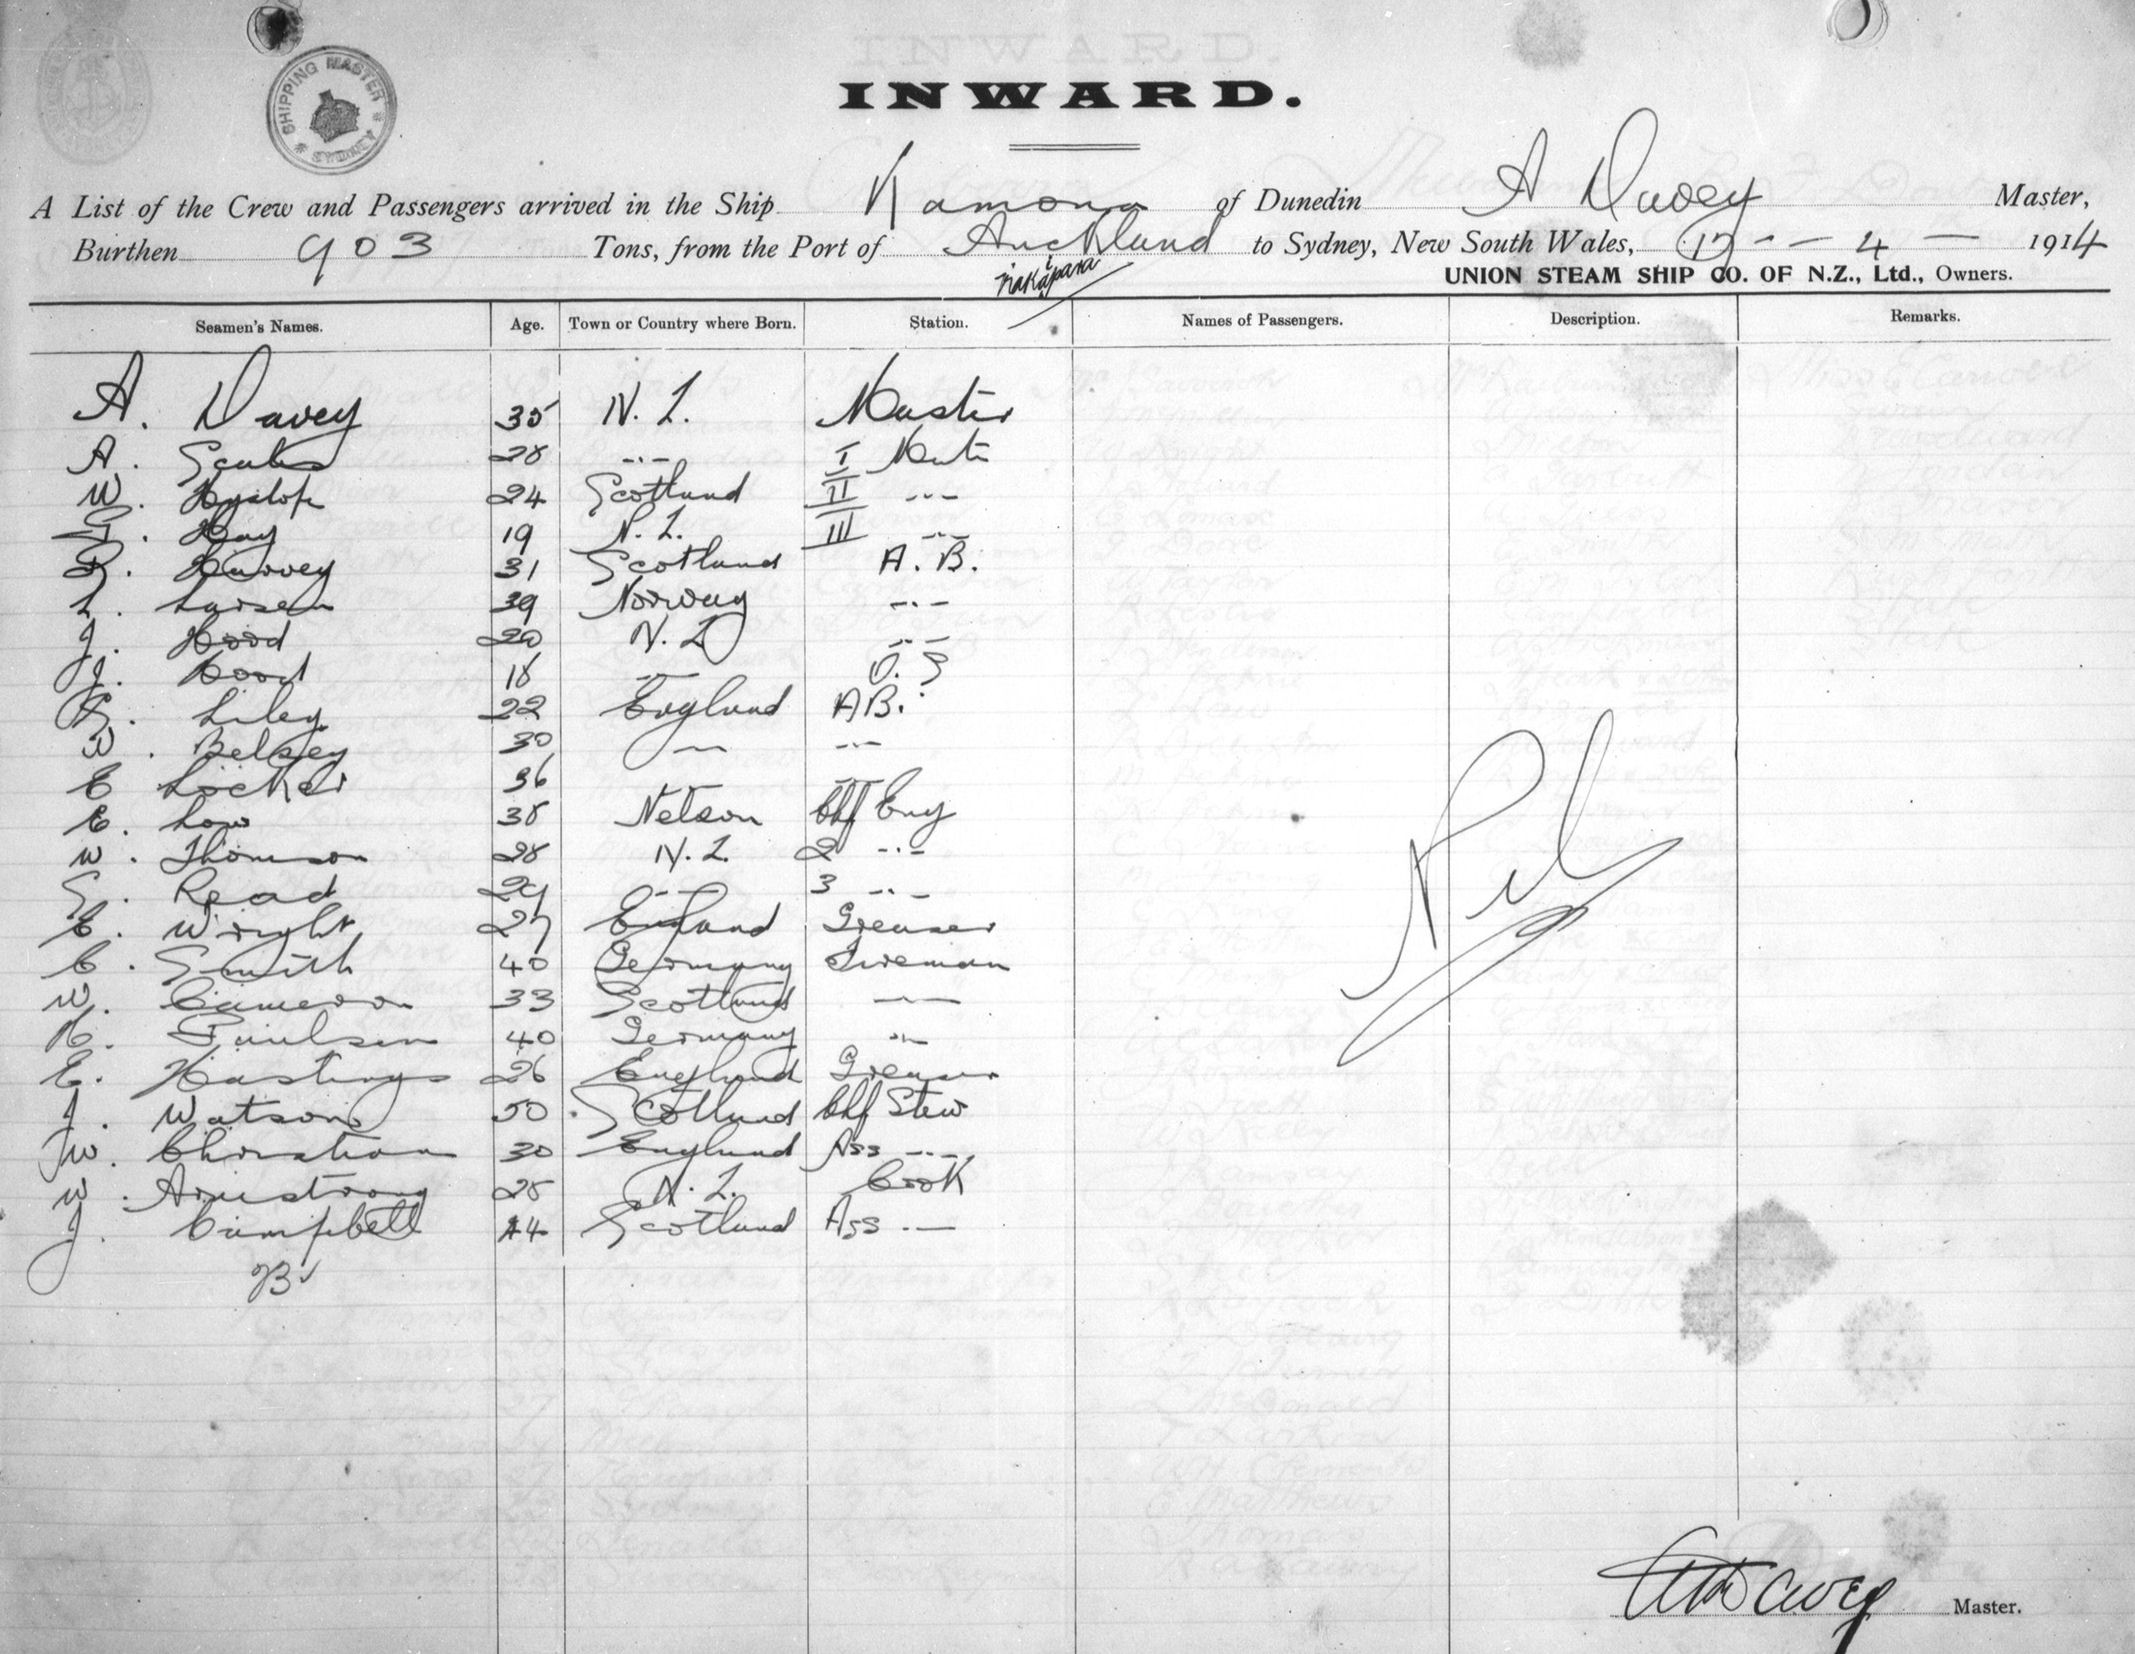 SHIPPING MASTER
* SYDNEY *
INWARD.
A List of the Crew and Passengers arrived in the Ship Kamona of Dunedin A Davey Master,
Burthen 903 Tons, from the Port of Auckland to Sydney, New South Wales, 17 - - 4 - 1914
UNION STEAM SHIP CO. OF N.Z., Ltd., Owners.
Seamen's Names. Age. Town or Country where Born. Station. Names of Passengers. Description. Remarks.
A. Davey 35 N. Z. Master
A. 28 -..- I Mate
W. Hyslop 24 Scotland II -..-
Hay 19 N. Z. III -..-
R. Harvey 31 Scotland A. B.
L. Larsen 39 Norway -..-
J. Hood 20 N. Z -..-
J. Hood 18 -..- O. S
Liley 22 England AB.
W. Belsey 30 -..- -..-
E Locker 36
E. Low 38 Nelson Chf Eng
W. Thomson 28 N. Z. 2 -..-
S. Read 29 -..- 3 -..-
E. Wright 27 England Greaser
C. Smith 40 Germany Fireman
W. Cameron 33 Scotland -..-
H. Paulsen 40 Germany -..-
E. Hastings 26 England Greaser
J. Watson 50 Scotland Chf Stew
JW. Christian 30 England Ass -..-
W. Armstrong 28 N. Z. Cook
J. Campbell 44 Scotland Ass -..-
Nil
Davey Master.